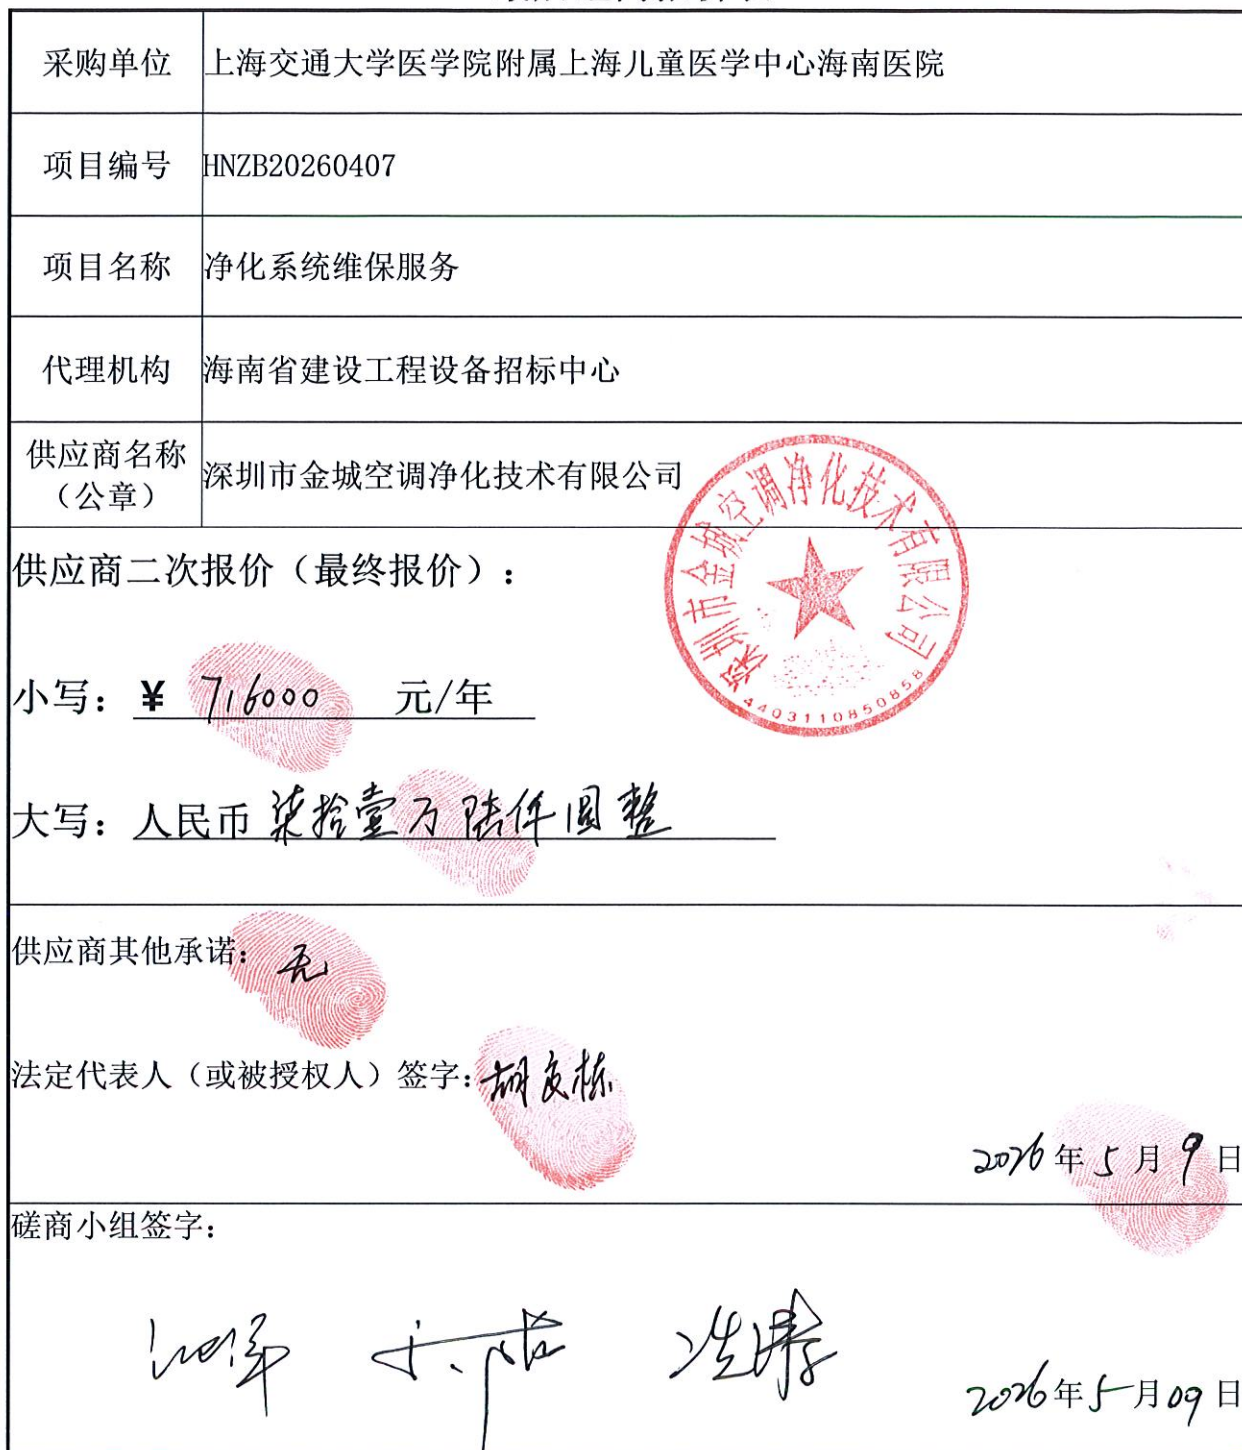 采购单位 上海交通大学医学院附属上海儿童医学中心海南医院
项目编号 HNZB20260407
项目名称 净化系统维保服务
代理机构 海南省建设工程设备招标中心
供应商名称（公章） 深圳市金城空调净化技术有限公司
深圳市金城空调净化技术有限公司
4403110850858
供应商二次报价（最终报价）：
小写：¥ 716000 元/年
大写：人民币 柒拾壹万陆仟圆整
供应商其他承诺：无
法定代表人（或被授权人）签字：胡友栋
2026年5月9日
磋商小组签字：
2026年5月09日